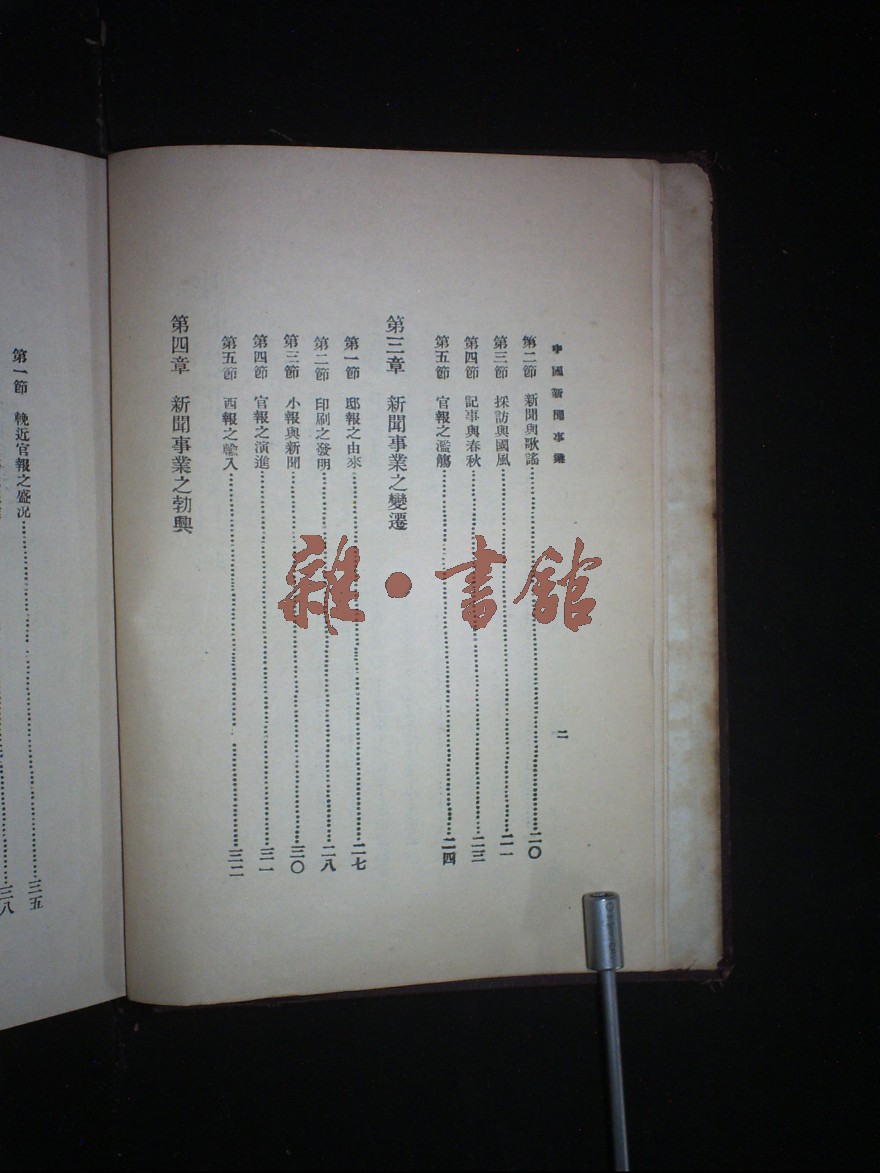 中國新聞事業
二
第二節 新聞與歌謠 二〇
第三節 採訪與國風 二一
第四節 記事與春秋 二三
第五節 官報之濫觴 二四
第三章 新聞事業之變遷
第一節 邸報之由來 二七
第二節 印刷之發明 二八
第三節 小報與新聞 三〇
第四節 官報之演進 三一
第五節 西報之輸入 三二
第四章 新聞事業之勃興
第一節 輓近官報之盛況 三五
三八
雜·書館